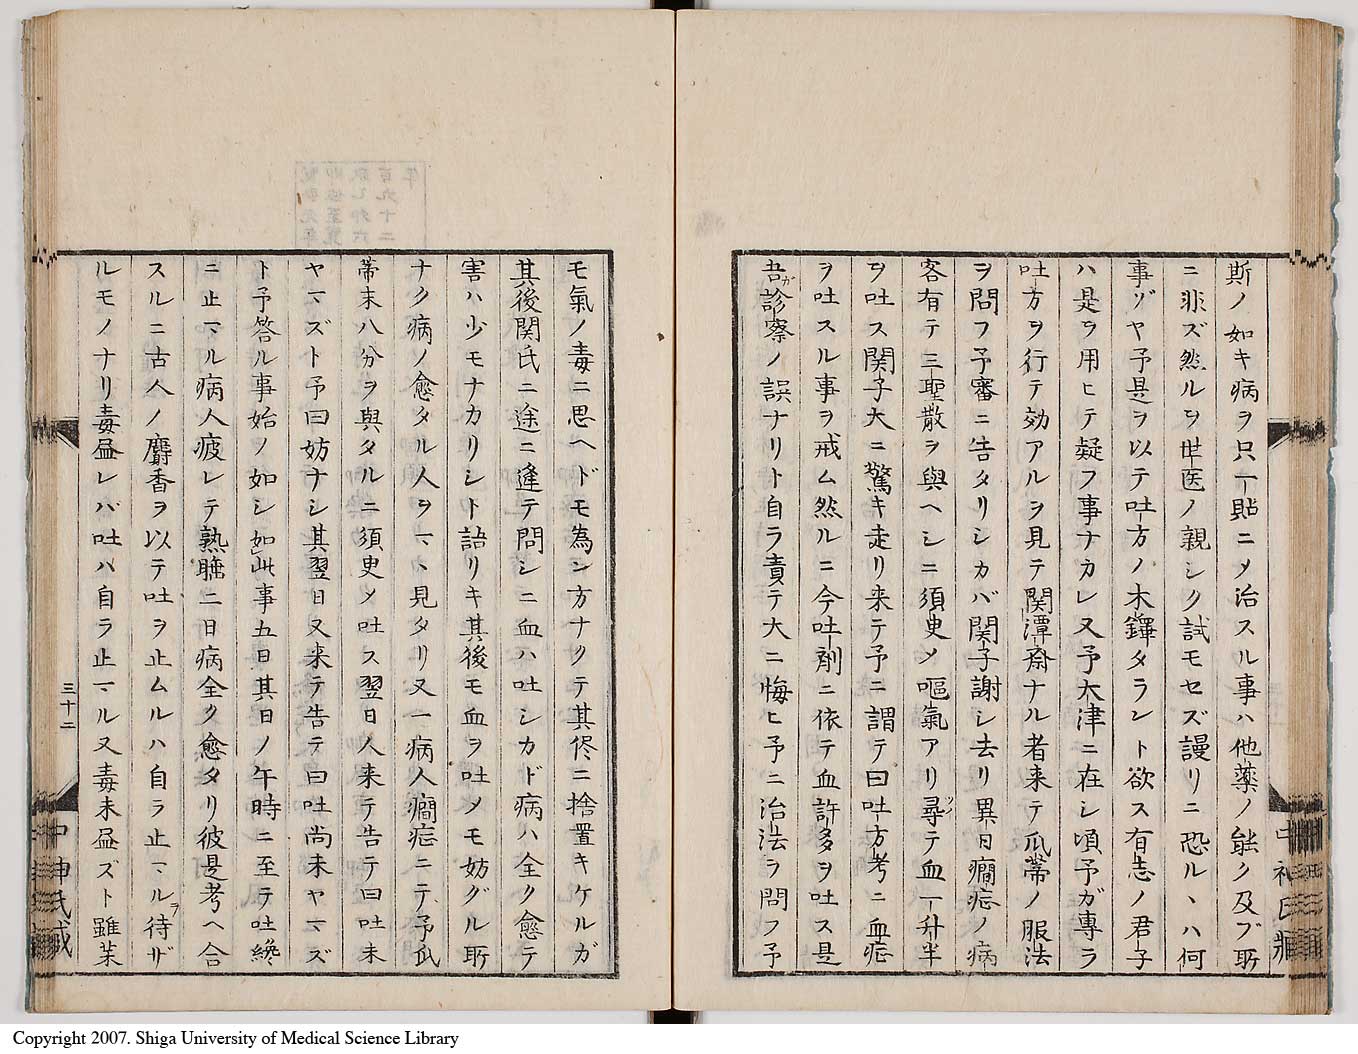 斯ノ如キ病ヲ只一貼ニメ治スル事ハ他藥ノ能ク及ブ所
ニ非ズ然ルヲ世医ノ親シク試モセズ謾リニ恐ルヽハ何
事ゾヤ予是ヲ以テ吐方ノ木鐸タラント欲ス有志ノ君子
ハ是ヲ用ヒテ疑フ事ナカレ又予大津ニ在シ頃予ガ專ラ
吐方ヲ行テ効アルヲ見テ関潭斎ナル者来テ瓜蒂ノ服法
ヲ問フ予審ニ告タリシカバ関子謝シ去リ異日癇症ノ病
客有テ三聖散ヲ與ヘシニ須臾メ嘔氣アリ尋テ血一升半
ヲ吐ス関子大ニ驚キ走リ来テ予ニ謂テ曰吐方考ニ血症
ヲ吐スル事ヲ戒ム然ルニ今吐剤ニ依テ血許多ヲ吐ス是
吾ガ診察ノ誤ナリト自ラ責テ大ニ悔ヒ予ニ治法ヲ問フ予
モ氣ノ毒ニ思ヘドモ為ン方ナクテ其侭ニ捨置キケルガ
其後関氏ニ途ニ逢テ問シニ血ハ吐シカド病ハ全ク愈テ
害ハ少モナカリシト語リキ其後モ血ヲ吐メモ妨グル所
ナク病ノ愈タル人ヲマヽ見タリ又一病人癇症ニテ予瓜
蒂末八分ヲ與タルニ須臾メ吐ス翌日人来テ告テ曰吐未
ヤマズト予曰妨ナシ其翌日又来テ告テ曰吐尚未ヤマズ
ト予答ル事始ノ如シ如此事五日其日ノ午時ニ至テ吐纔
ニ止マル病人疲レテ熟睡二日病全ク愈タリ彼是考ヘ合
スルニ古人ノ麝香ヲ以テ吐ヲ止ムルハ自ラ止マルヲ待ザ
ルモノナリ毒盡レバ吐ハ自ラ止マル又毒未盡ズト雖某
三十二
中神氏蔵